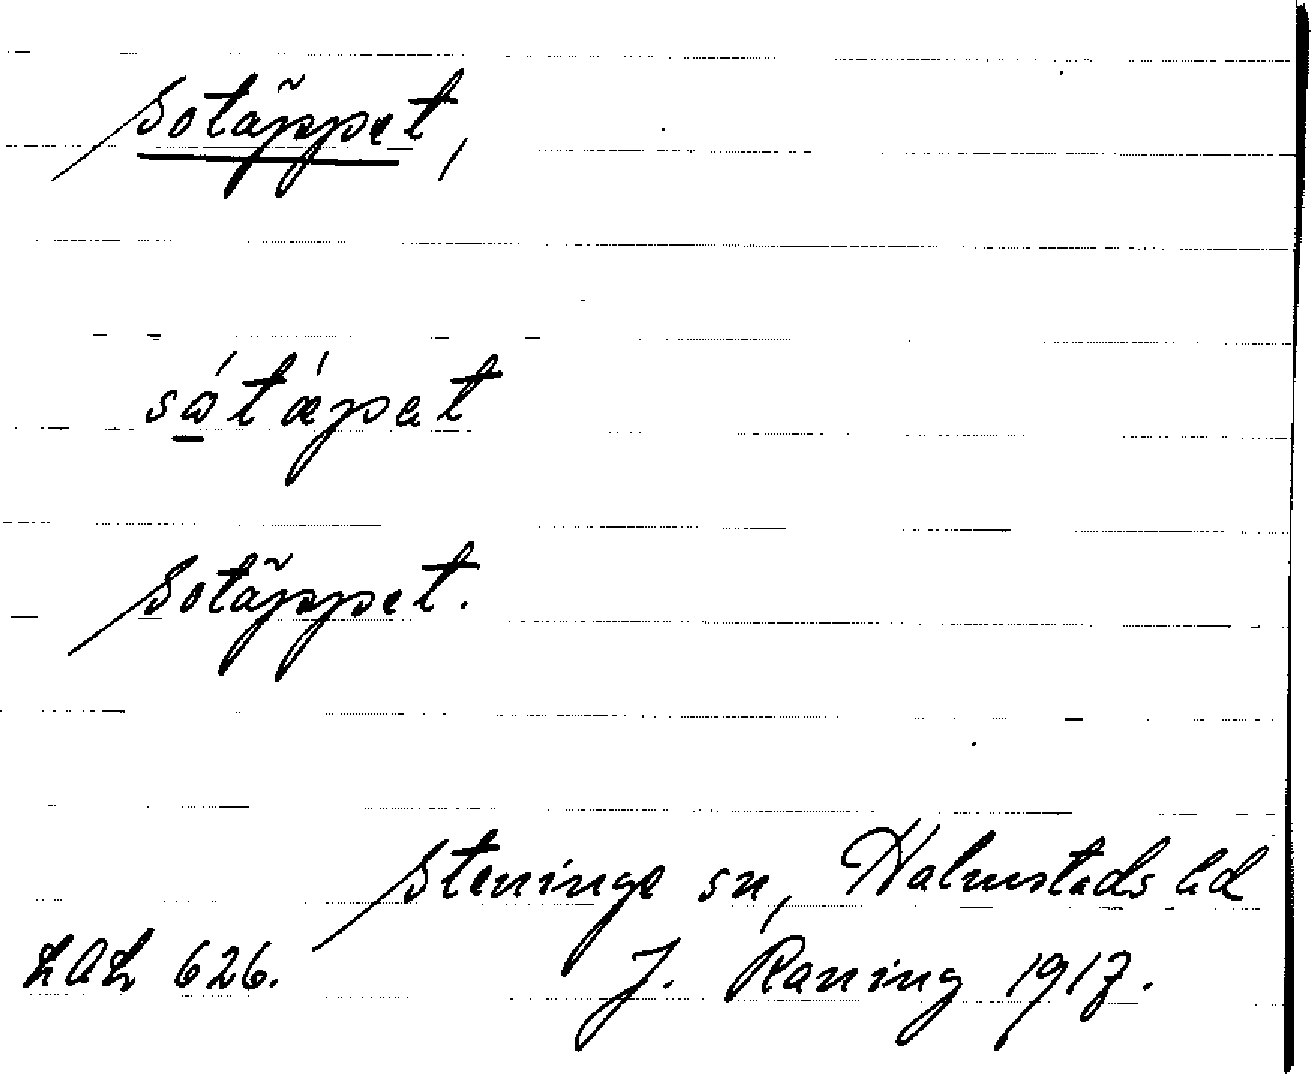 sotäppet,
såtápet
Sotäppet.
Steninge sn, Halmstads hd
LAL 626. J. Raning 1917.